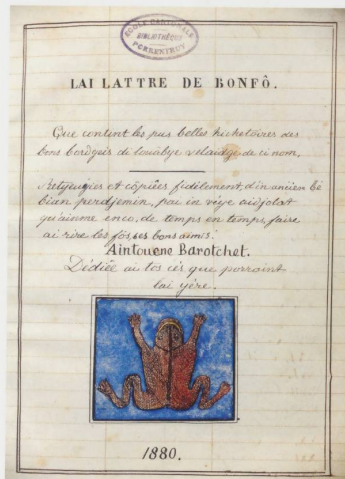 ÉCOLE CANTONALE
BIBLIOTHÈQUE
PORRENTRUY
LAI LATTRE DE BONFÔ.
Que contint les pus belles hichetoires des
bons bordgeis de
de ci nom.
et côpiées fidèlement, d'in ancïen bé
bian perdjemin, poi in véye aidjolat
qu'ainme enco, de temps en temps, faire
ai rire les fôs, ses bons aimis:
Aintouene Barotchet.
Dédiée ai tos cés que porraint
lai yére.
1880.